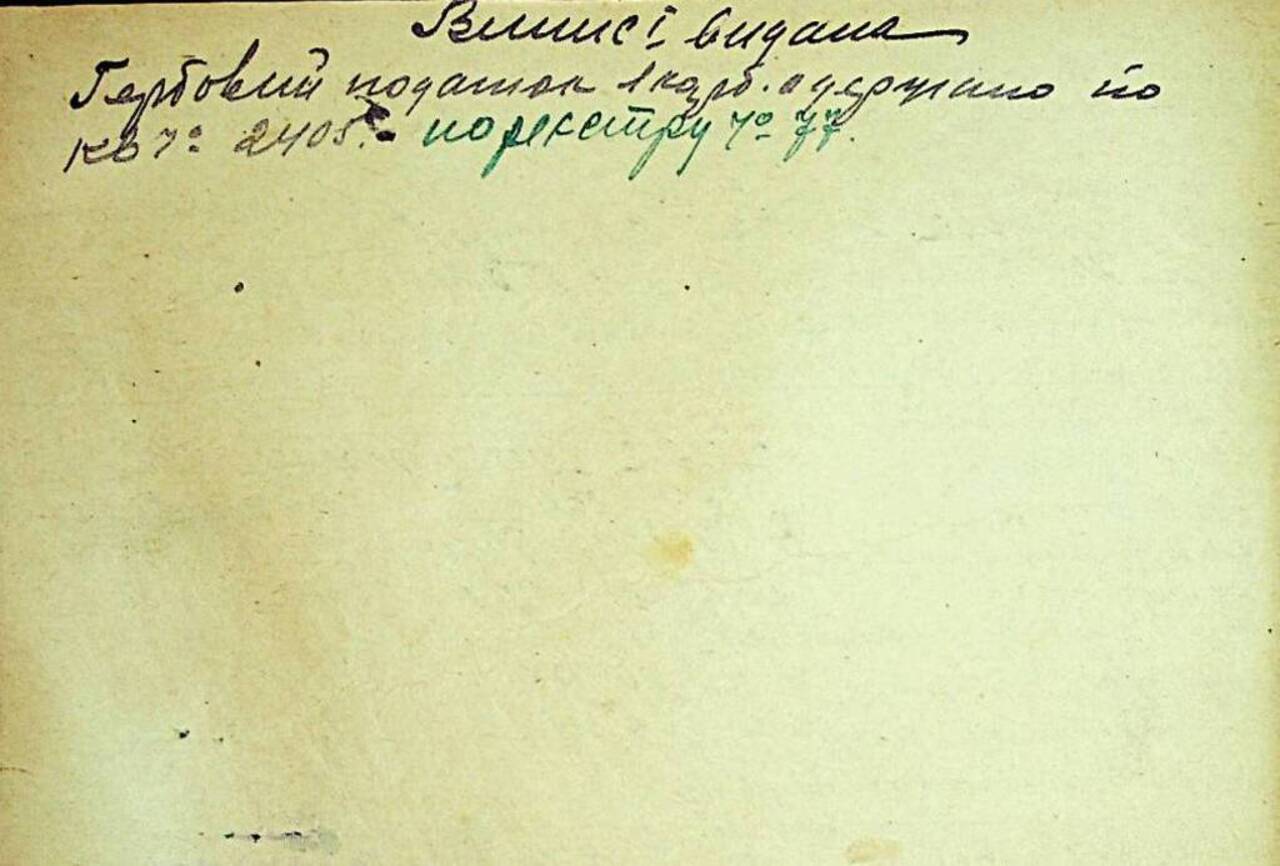 Виписі видана
Гербовий податок 1 карб. одержано по
кв № 2405. по реєстру № 77.